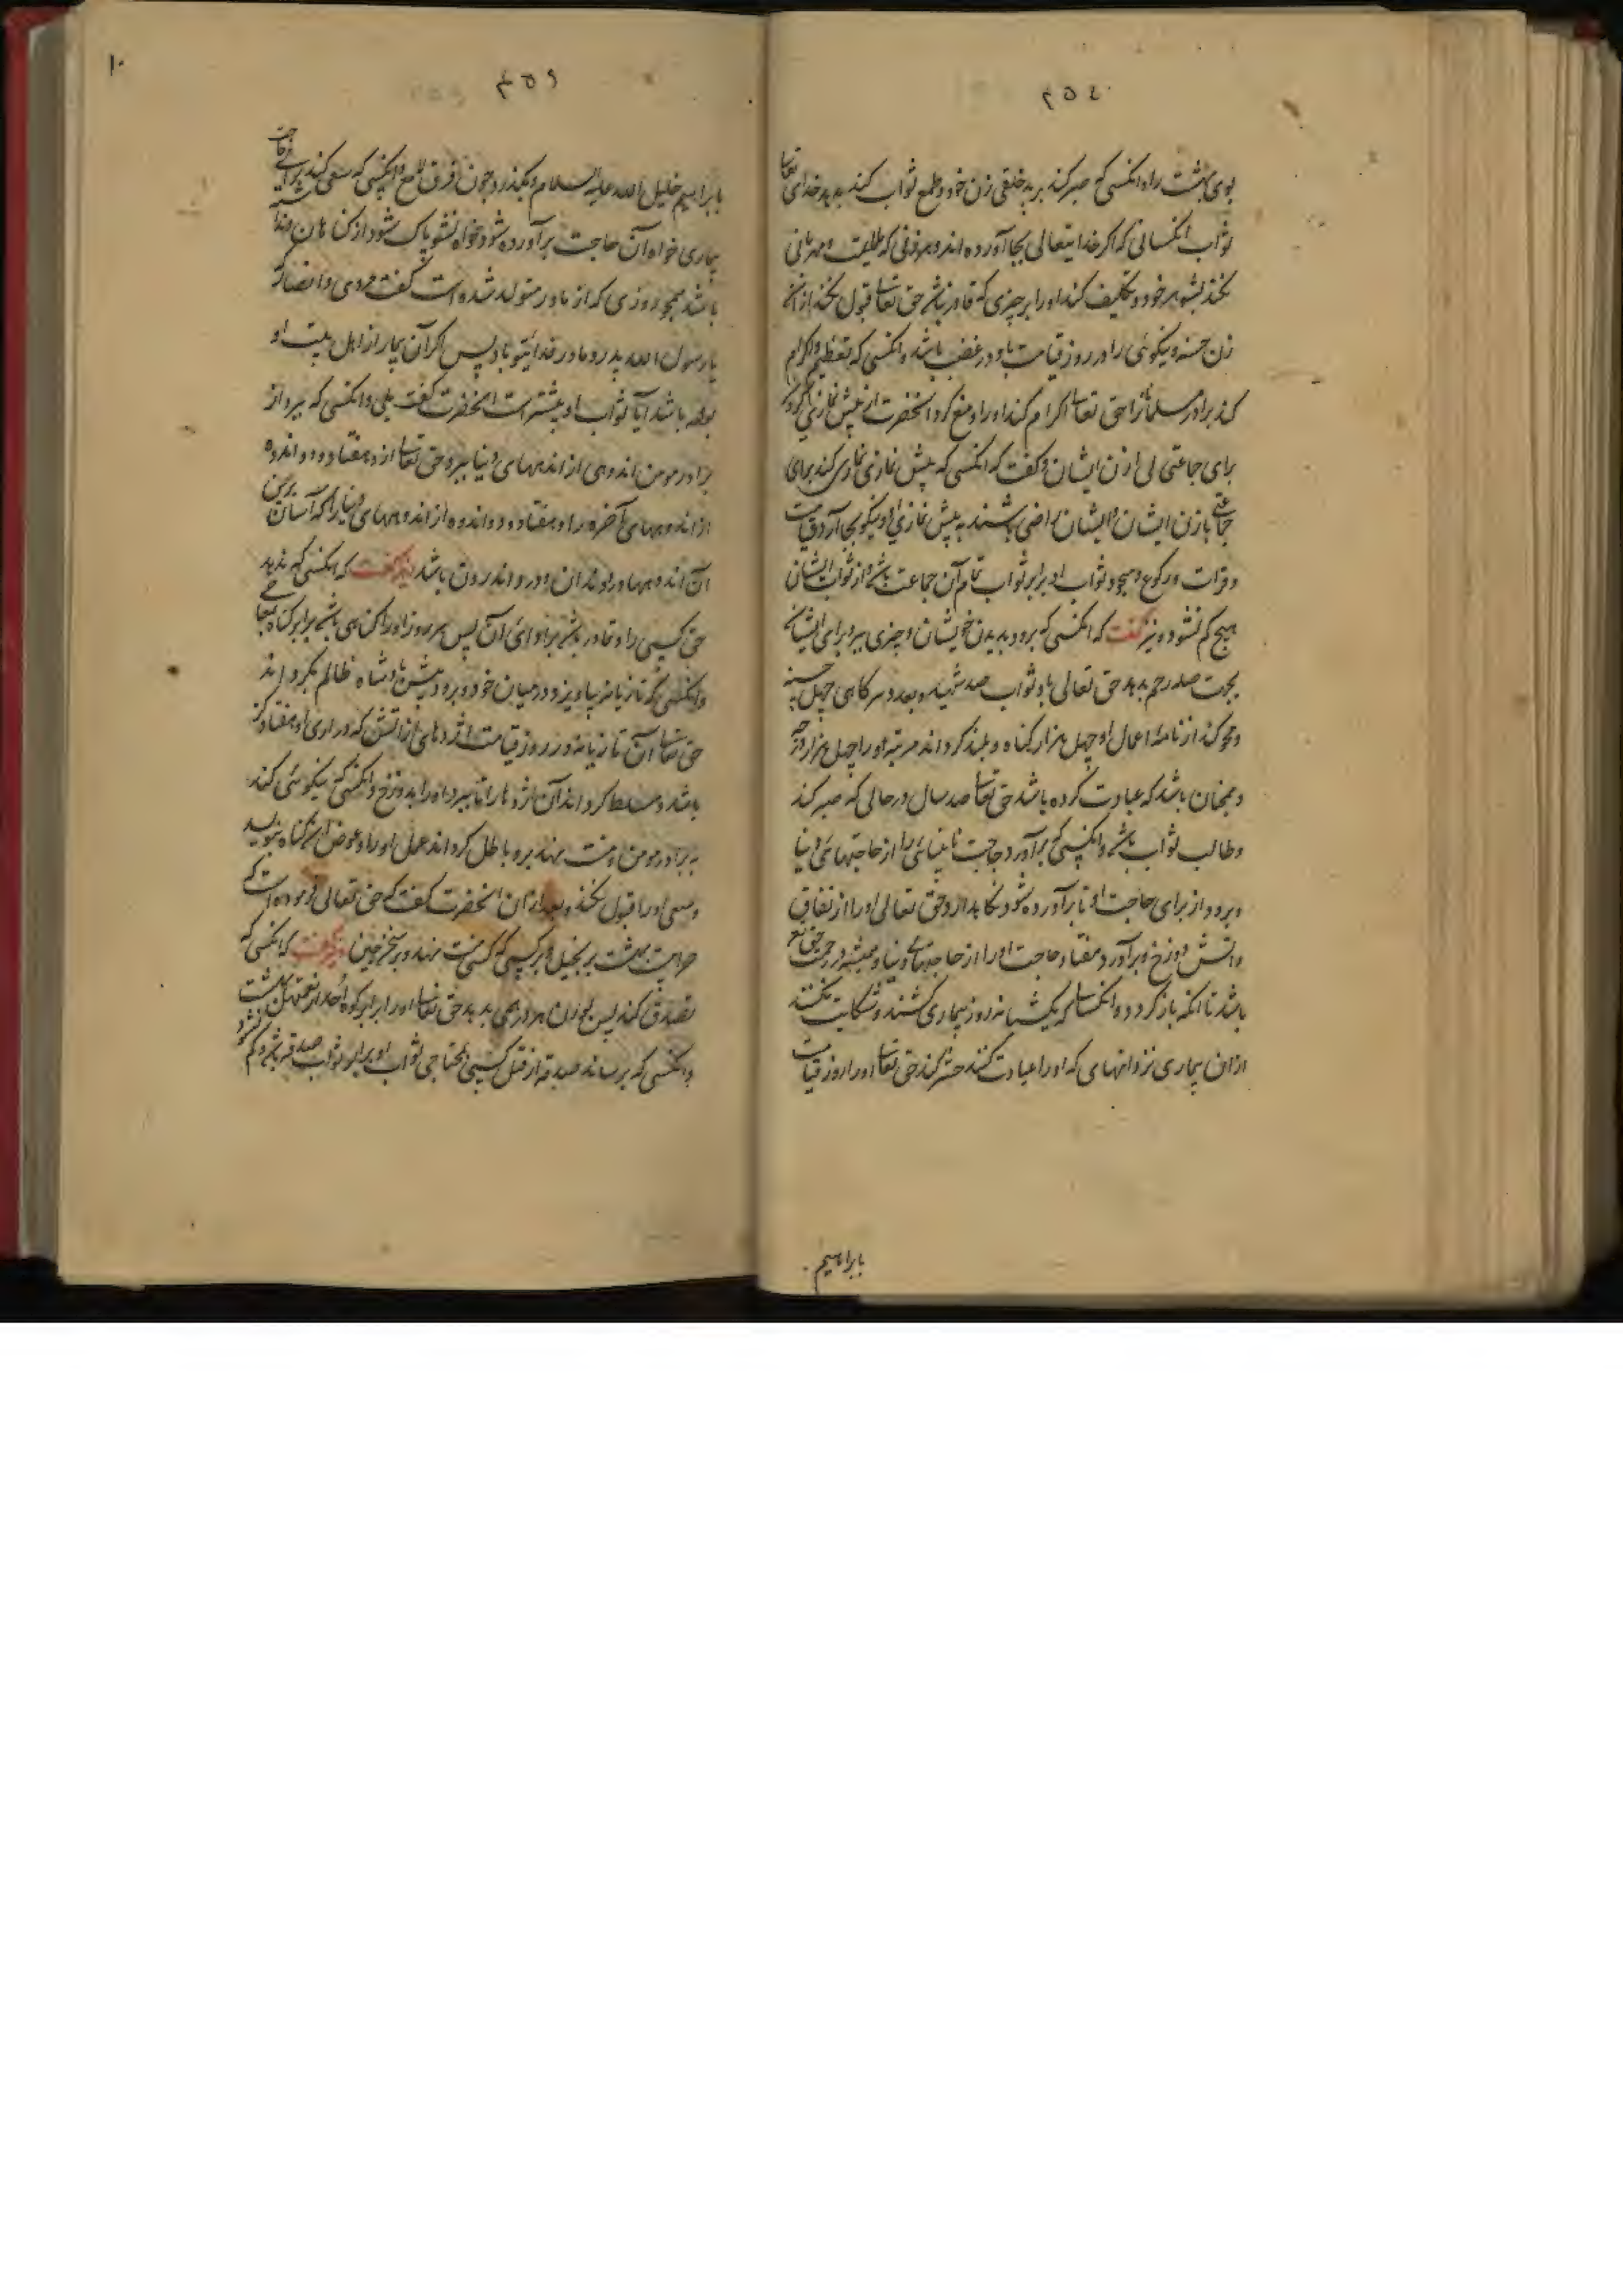 ۴۵۸
بوی بهشت را و انکسی که صبر کند بر بد خلقی زن خود و طمع ثواب کند بدهد خدای تعا
ثواب انکسانی که شکر خدایتعالی بجا آورده اند و هر زنی که و مهربانی
نکند بشوهر خود و تکلیف کند او را بر چیزی که قادر نباشد حق تعا قبول نکند از ان
زن حسنه و نیکوئی را و در روز قیامت با و در غضب باشد و انکسی که تعظیم و اکرام
کند برادر مسلمانرا حق تعا اکرام کند او را و منع کرد انحضرت از پیش نمازی کردن
برای جماعتی بی اذن ایشان و گفت که انکسی که پیش نمازی کند برای
جماعتی باذن ایشان و ایشان راضی باشند به پیش نمازی او و نیکو بجا آرد قیامت
و قرات و رکوع و سجود ثواب او برابر ثواب تمام آن جماعت باشد و از ثواب ایشان
هیچ کم نشود و نیز گفت که انکسی که برود بدیدن خویشان و چیزی ببرد برای ایشان
بجهت صله رحم بدهد حق تعالی باو ثواب صد شهید و بعدد هر کامی چهل حسنه
و محو کند از نامه اعمال او چهل هزار گناه و بلند کرداند مرتبه او را چهل هزار درجه
و همچنان باشد که عبادت کرده باشد حق تعا صد سال در حالی که صبر کند
و طالب ثواب باشد و انکسی که برآورد حاجت نابینائی را از حاجتهای دنیا
و برود از برای حاجت او تا برآورده شود نکا بدارد حق تعالی او را از نفاق
و اتش دوزخ و برآورد هفتاد حاجت او را از حاجتهای دنیا و همیشه در رحمت حق تع
باشد تا انکه باز کردد و انکسی که یکشبانه روز بیماری کشند و شکایت نکند
از ان بیماری نزد انهای که او را عیادت کنند حشر کند حق تعا او را روز قیامت
بابراهیم
۱۰
۴۵۹
بابراهیم خلیل الله علیه السلام و بکذرد چون برق لامع و انکسی که سعی کند برای حاجت
بیماری خواه آن حاجت برآورده شود خواه نشود پاک شود از کناهان
باشد همچو روزی که از مادر متولد شده است گفت مردی از انصار که
یا رسول الله پدر و مادرم فدایتو باد پس اکر آن بیمار از اهل بیت او
بوده باشد آیا ثواب او بیشتر است انحضرت گفت بلی و انکسی که ببرد از
برادر مومن اندوهی از اندوههای دنیا ببرد حق تعا از و هفتاد و دو اندوه
از اندوههای آخرة را و هفتاد و دو اندوه از اندوههای دنیا را که آسان ترین
آن اندوهها درد اندرون باشد و نیز گفت که انکسی که ندهد
حق کسی را و قادر باشد بر ادای آن پس هر روز او را کناهی باشد برابر کناه
و انکسی که تازیانه بیاویزد در میان خود و برود پیش پادشاه ظالم بکرداند
حق تعا آن تازیانه در روز قیامت اژدهای از اتش که درازی او هفتاد کز
باشد و مسلط کرداند آن اژدها را تا ببرد او را بدوزخ و انکسی که نیکوئی کند
به برادر مومن و منت نهد برو باطل کرداند عمل او را و عوض آن کناه بنویسد
و سعی او را قبول نکند و بعد از ان انحضرت گفت که حق تعالی فرموده است که
حرامست بهشت بر بخیل و بر کسی که منت نهد و بر سخن چین و نیز گفت که انکسی که
تصدق کند پس بوزن هر درهمی بدهد حق تعا او را برابر کوه احد از نعمتهای بهشت
و انکسی که برساند صدقه از قبل کسی بمحتاجی ثواب او برابر ثواب صدقه باشد و کم نشود